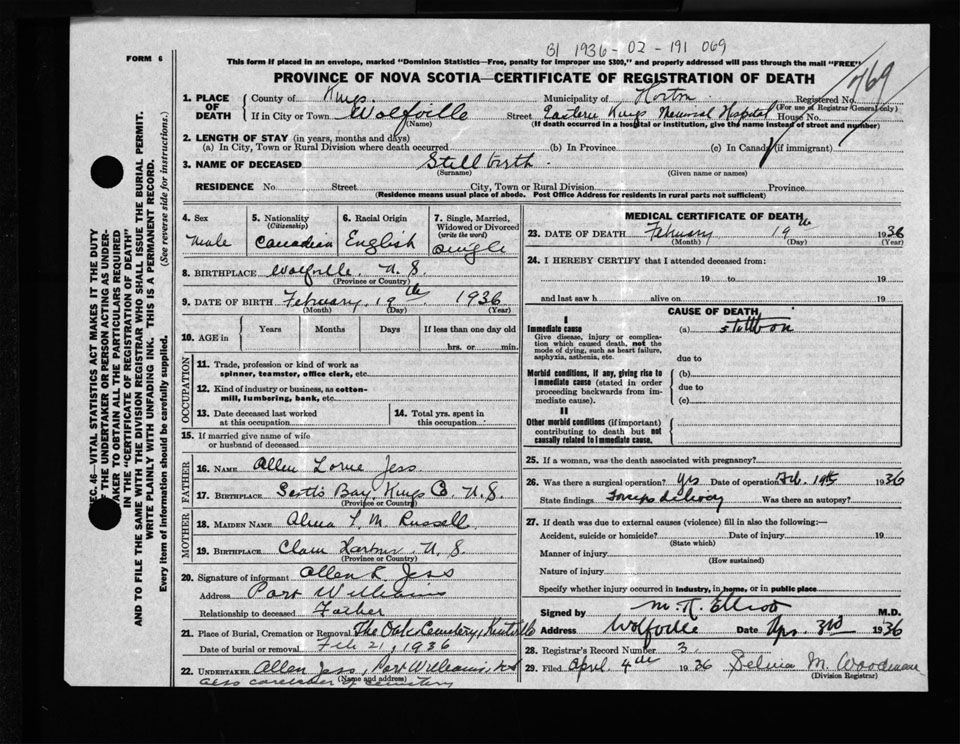 B1 1936-02-191 069
FORM 6
This form if placed in an envelope, marked "Dominion Statistics—Free, penalty for improper use $300," and properly addressed will pass through the mail "FREE"
PROVINCE OF NOVA SCOTIA—CERTIFICATE OF REGISTRATION OF DEATH
769
1. PLACE OF DEATH
County of Kings Municipality of Horton Registered No.
(For use of Registrar General only)
If in City or Town Wolfville Street Eastern Kings Memorial Hospital House No.
(Name) (If death occurred in a hospital or institution, give the name instead of street and number)
2. LENGTH OF STAY (in years, months and days)
(a) In City, Town or Rural Division where death occurred (b) In Province (c) In Canada (if immigrant)
3. NAME OF DECEASED Stillbirth
(Surname) (Given name or names)
RESIDENCE No. Street City, Town or Rural Division Province
(Residence means usual place of abode. Post Office Address for residents in rural parts not sufficient)
4. Sex
male
5. Nationality
(Citizenship)
Canadian
6. Racial Origin
English
7. Single, Married, Widowed or Divorced
(write the word)
single
8. BIRTHPLACE Wolfville N.S.
(Province or Country)
9. DATE OF BIRTH February 19th 1936
(Month) (Day) (Year)
10. AGE in
Years Months Days If less than one day old
hrs. or min.
OCCUPATION
11. Trade, profession or kind of work as
spinner, teamster, office clerk, etc.
12. Kind of industry or business, as cotton-
mill, lumbering, bank, etc.
13. Date deceased last worked
at this occupation
14. Total yrs. spent in
this occupation
15. If married give name of wife
or husband of deceased
FATHER
16. NAME Allen Lorne Jess
17. BIRTHPLACE Scotts Bay, Kings Co. N.S.
(Province or Country)
MOTHER
18. MAIDEN NAME Alma L. M. Russell
19. BIRTHPLACE Clam Harbour N.S.
(Province or Country)
20. Signature of informant Allen L. Jess
Address Port Williams
Relationship to deceased Father
21. Place of Burial, Cremation or Removal The Oaks Cemetery, Kentville
Date of burial or removal Feb 21, 1936
22. UNDERTAKER Allen Jess, Port Williams, N.S.
(Name and address)
also caretaker of cemetery
MEDICAL CERTIFICATE OF DEATH
23. DATE OF DEATH February 19th 1936
(Month) (Day) (Year)
24. I HEREBY CERTIFY that I attended deceased from:
19 to 19
and last saw h alive on 19
CAUSE OF DEATH
I
Immediate cause
Give disease, injury or complica-
tion which caused death, not the
mode of dying, such as heart failure,
asphyxia, asthenia, etc.
(a) stillborn
due to
Morbid conditions, if any, giving rise to
immediate cause (stated in order
proceeding backwards from im-
mediate cause).
(b)
due to
(c)
II
Other morbid conditions (if important)
contributing to death but not
causally related to immediate cause.
25. If a woman, was the death associated with pregnancy?
26. Was there a surgical operation? Yes Date of operation Feb. 19th 1936
State findings Forceps delivery Was there an autopsy?
27. If death was due to external causes (violence) fill in also the following:—
Accident, suicide or homicide? Date of injury 19
(State which)
Manner of injury
(How sustained)
Nature of injury
Specify whether injury occurred in industry, in home, or in public place
Signed by M. R. Elliott M.D.
Address Wolfville Date Apr. 3rd 1936
28. Registrar's Record Number 3.
29. Filed April 4th 1936 Selina M. Woodman
(Division Registrar)
SEC. 46—VITAL STATISTICS ACT MAKES IT THE DUTY
OF THE UNDERTAKER OR PERSON ACTING AS UNDER-
TAKER TO OBTAIN ALL THE PARTICULARS REQUIRED
IN THE "CERTIFICATE OF REGISTRATION OF DEATH"
AND TO FILE THE SAME WITH THE DIVISION REGISTRAR WHO SHALL ISSUE THE BURIAL PERMIT.
WRITE PLAINLY WITH UNFADING INK. THIS IS A PERMANENT RECORD.
Every item of information should be carefully supplied. (See reverse side for instructions.)